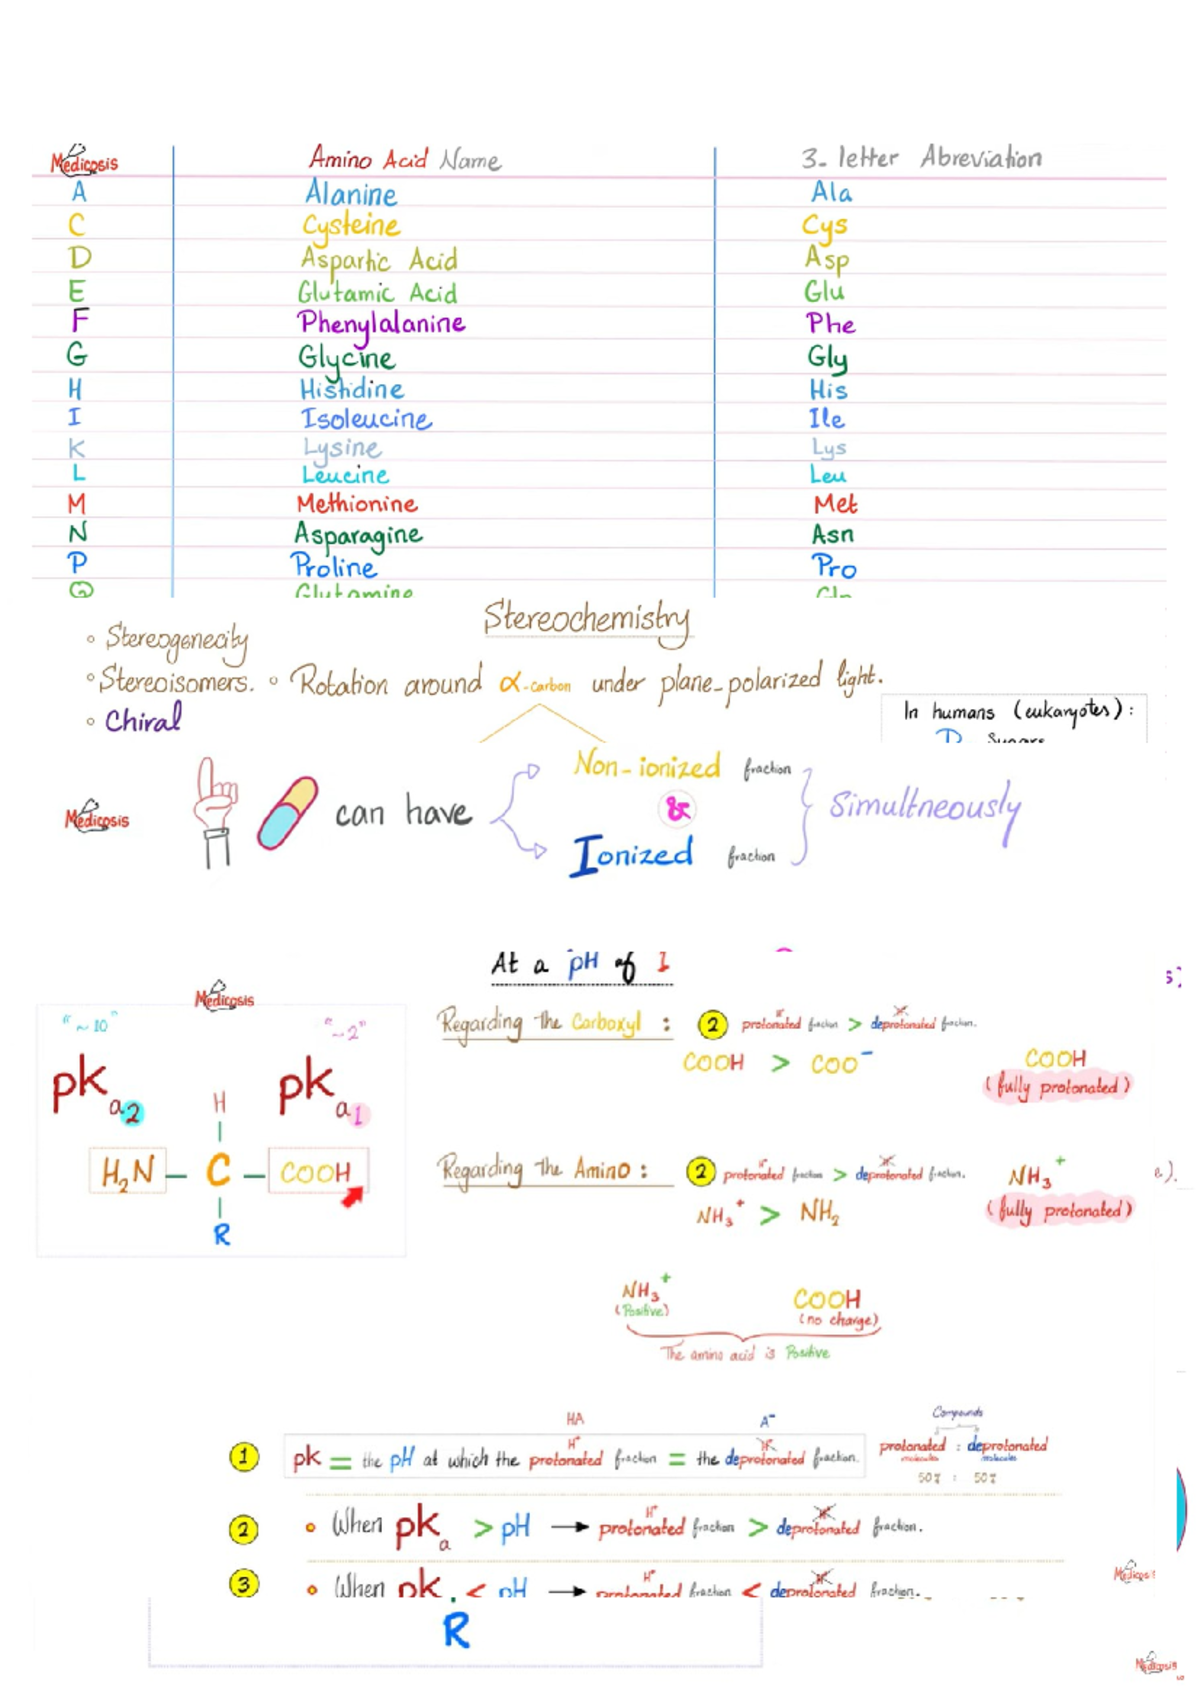 Medicosis Amino Acid Name 3- letter Abreviation
A Alanine Ala
C Cysteine Cys
D Aspartic Acid Asp
E Glutamic Acid Glu
F Phenylalanine Phe
G Glycine Gly
H Histidine His
I Isoleucine Ile
K Lysine Lys
L Leucine Leu
M Methionine Met
N Asparagine Asn
P Proline Pro
Q Glutamine Gln
Stereochemistry
• Stereogenecity
• Stereoisomers. • Rotation around α-carbon under plane-polarized light.
• Chiral
In humans (eukaryotes):
D Sugars
Medicosis can have
Non-ionized fraction
&
Ionized fraction
Simultneously
At a pH of 1
Medicosis
"~ 10" "~2"
pka2 pka1
H
H2N – C – COOH
R
Regarding the Carboxyl : 2 H+ protonated fraction > H+ deprotonated fraction.
COOH > COO− COOH
(fully protonated)
Regarding the Amino : 2 H+ protonated fraction > H+ deprotonated fraction. NH3+
NH3+ > NH2 (fully protonated)
e).
s)
NH3+ COOH
(Positive) (no charge)
The amino acid is Positive
HA A− Compounds
1 pk = the pH at which the H+ protonated fraction = the H+ deprotonated fraction. protonated : deprotonated
molecules molecules
50% : 50%
2 • When pka > pH → H+ protonated fraction > H+ deprotonated fraction.
3 • When pk < pH → H+ protonated fraction < H+ deprotonated fraction.
Medicosis
R
Medicosis